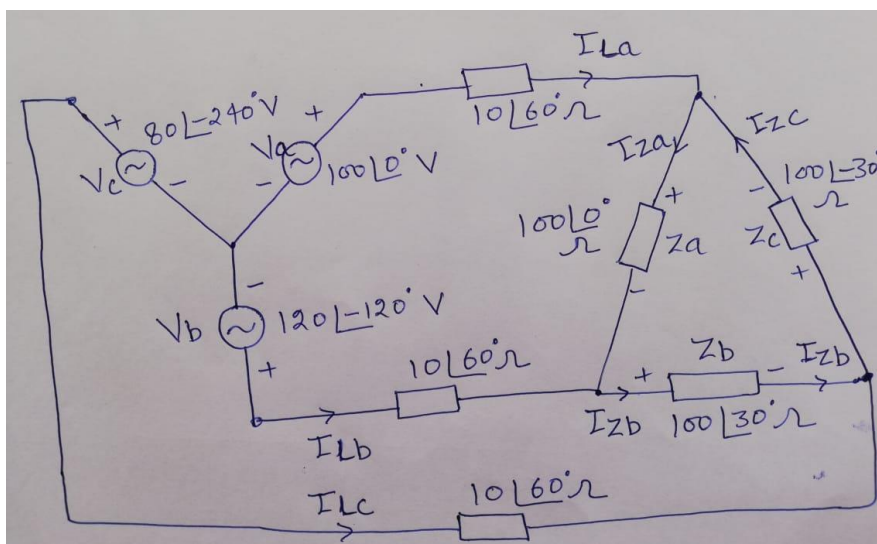 ILa
80∟-240°V
+
+
10∟60°Ω
Va
Vc
-
-
100∟0° V
IZa
IZc
100∟-30°
Ω
100∟0°
Ω
+
Za
-
-
Zc
+
-
Vb
120∟-120°V
+
10∟60°Ω
Zb
+
-
IZb
IZb
100∟30°Ω
ILb
10∟60°Ω
ILc